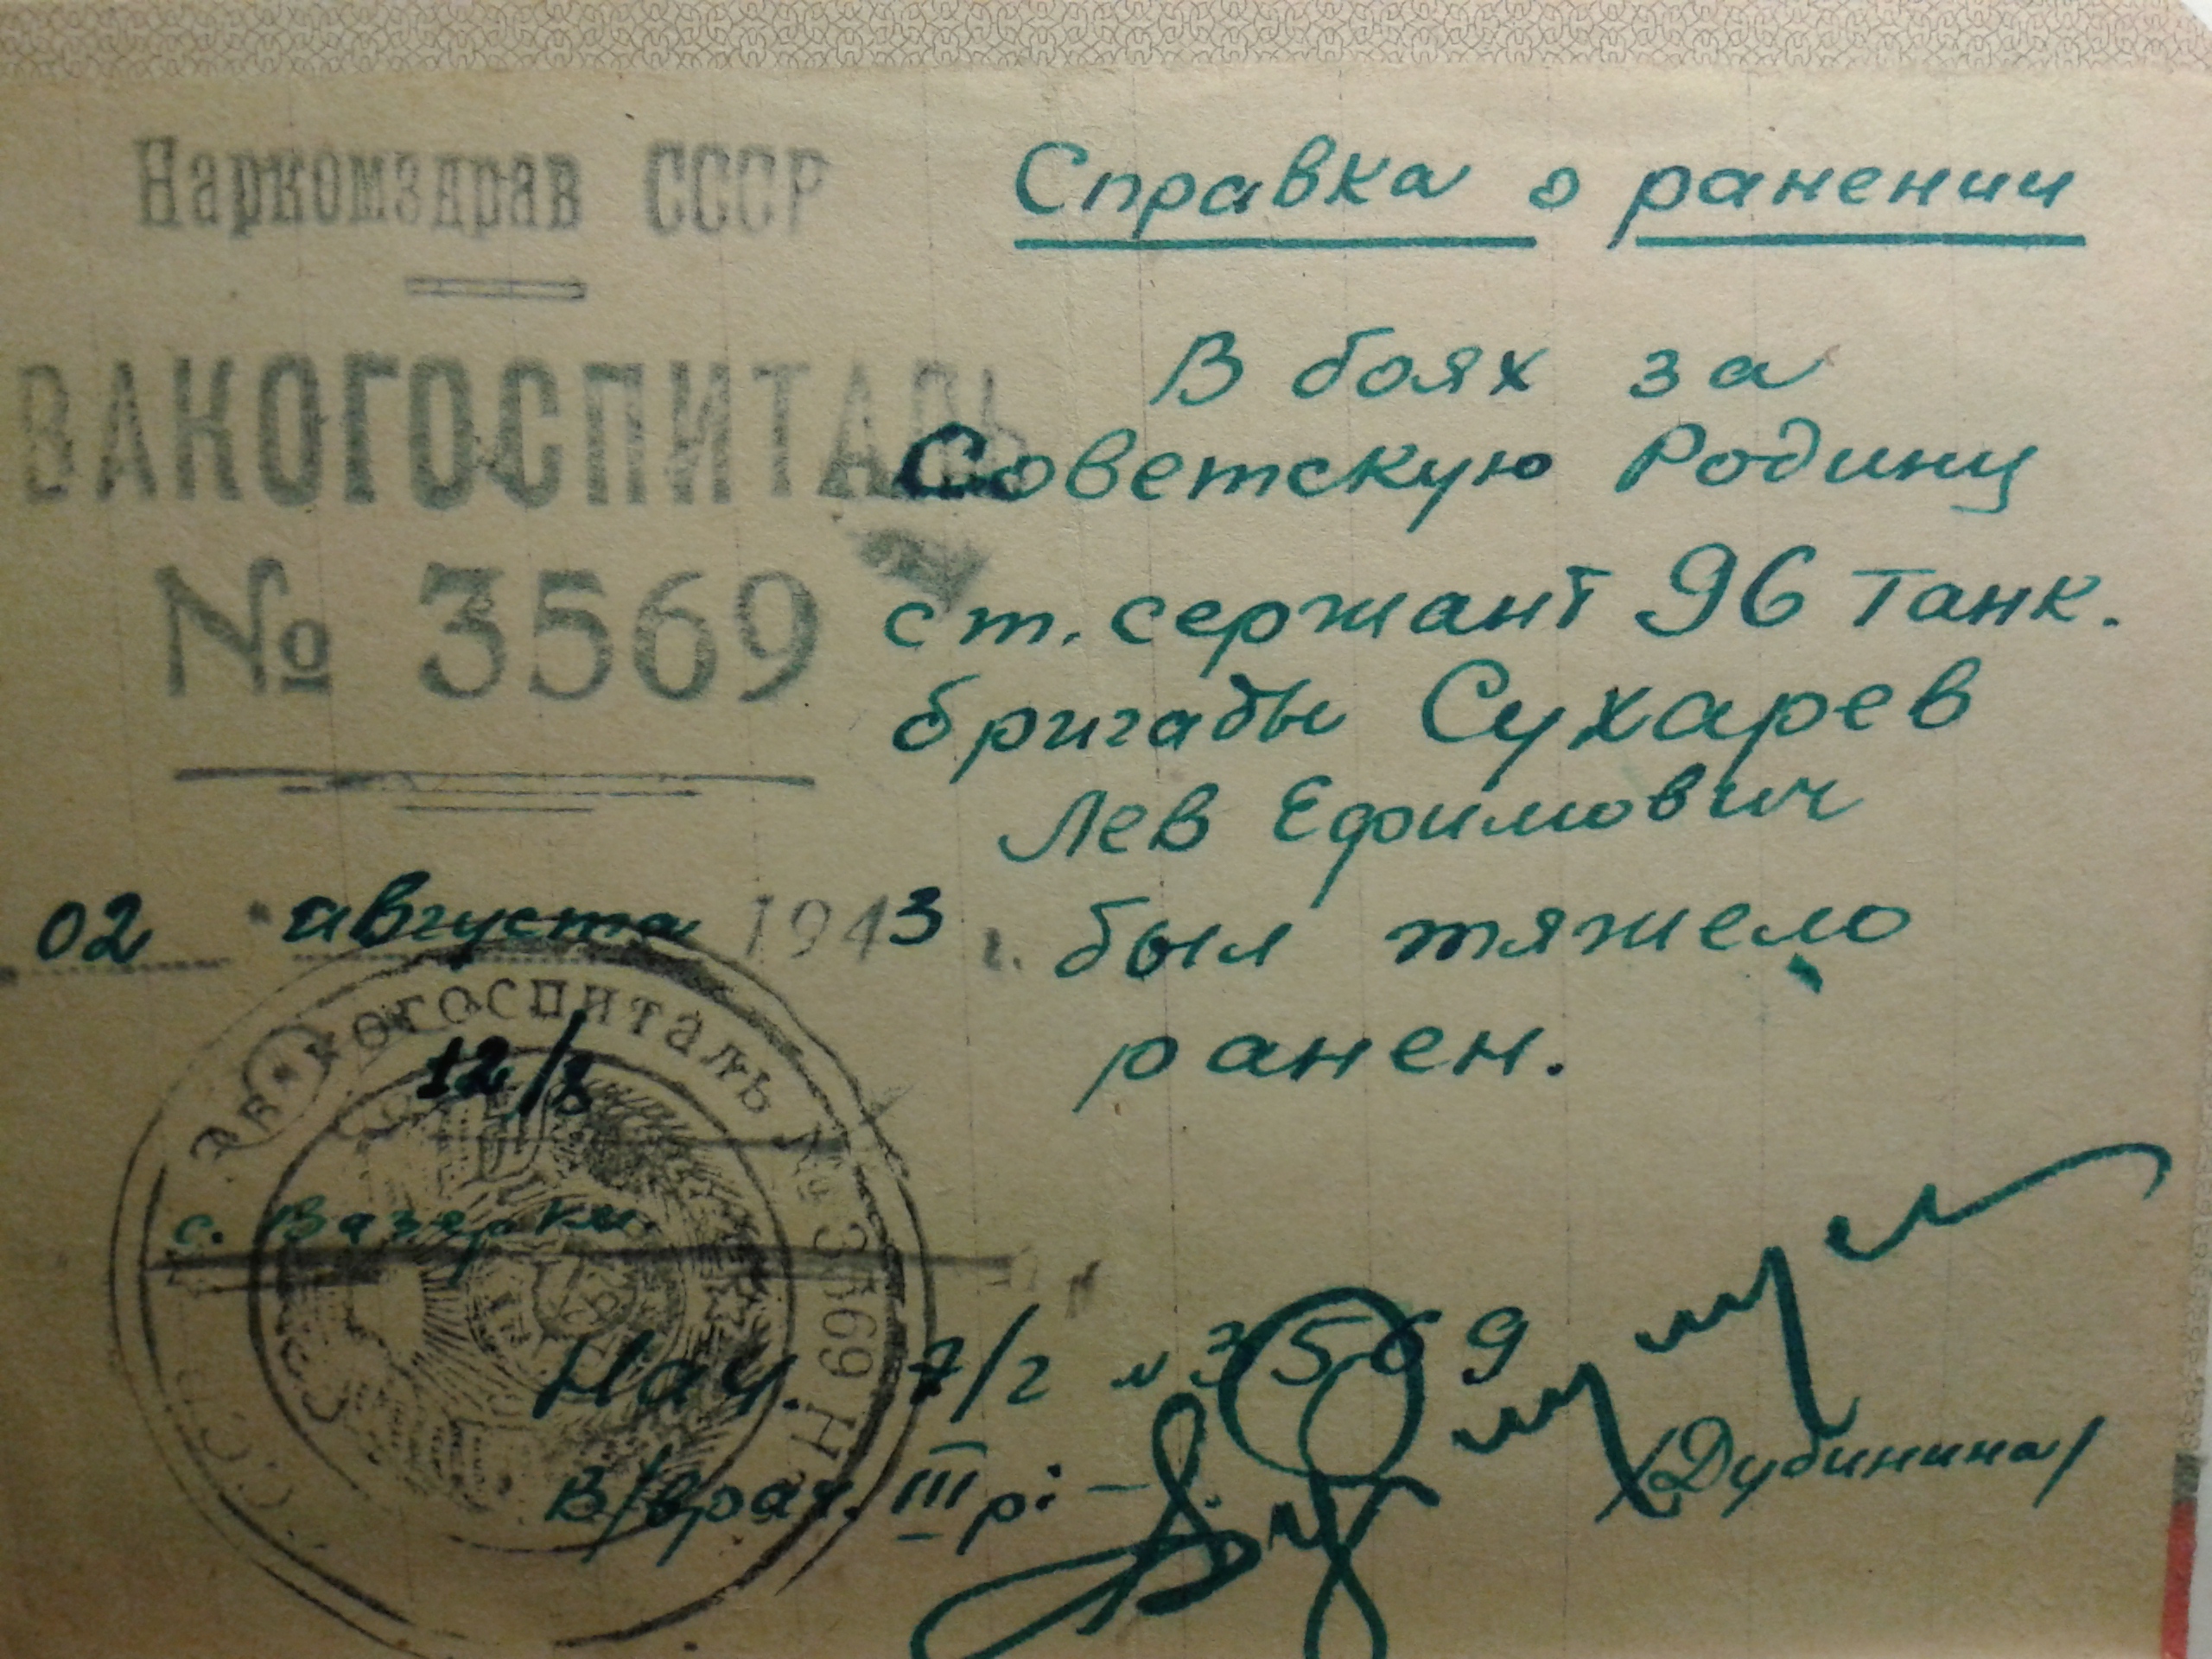 Наркомздрав СССР
ВАКОГОСПИТАЛЬ
№ 3569
02 августа 1943 г.
12/8
Эвакогоспиталь № 3569 Н
с. Вазерки
Справка о ранении
В боях за
Советскую Родину
ст. сержант 96 танк.
бригады Сухарев
Лев Ефимович
был тяжело
ранен.
Нач. э/г № 3569
В/врач. III р:
/Дубинина/